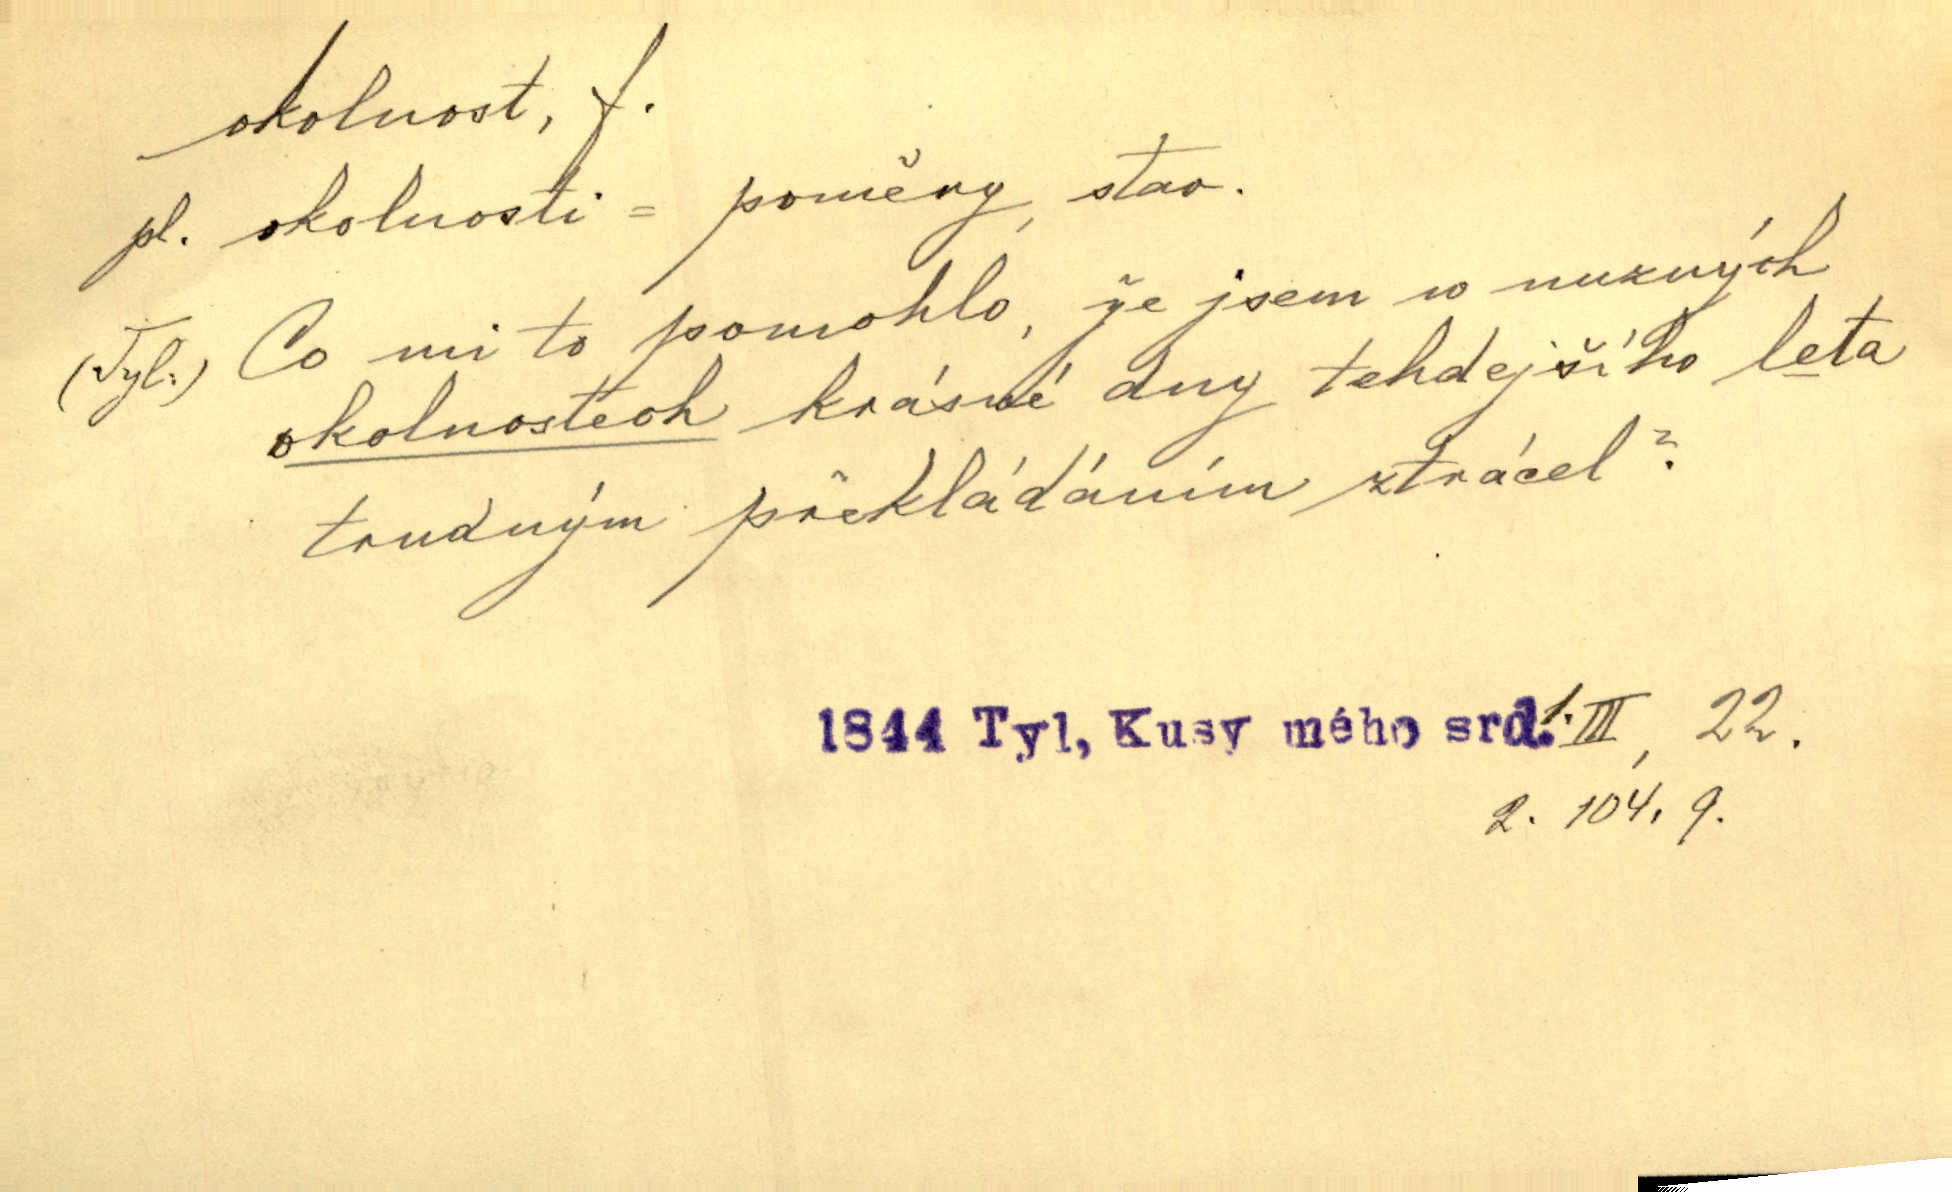 okolnost, f.
pl. okolnosti = poměry, stav.
(Tyl:) Co mi to pomohlo, že jsem w nuzných
okolnostech krásné dny tehdejšího leta
trudným překládáním ztrácel?
1844 Tyl, Kusy mého srd. 1. III, 22.
2. 104, 9.